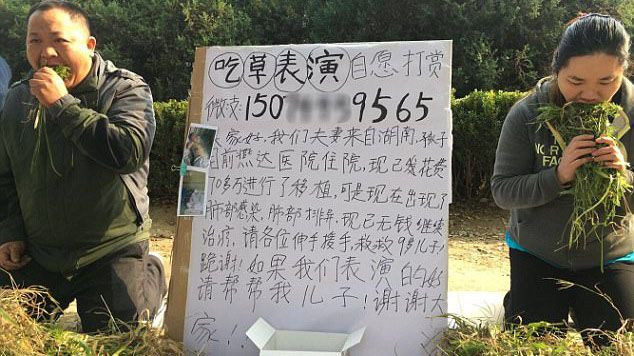 吃草表演 自愿打赏
微支:150 9565
大家好,我们夫妻来自湖南,孩子
目前燕达医院住院,现已发花费
70多万进行了移植,可是现在出现了
肺部感染,肺部排异,现已无钱继续
治疗,请各位伸手援手,救救9岁儿子!
跪谢!如果我们表演的好
请帮帮我儿子!谢谢大
家!!
NORTH
FACE